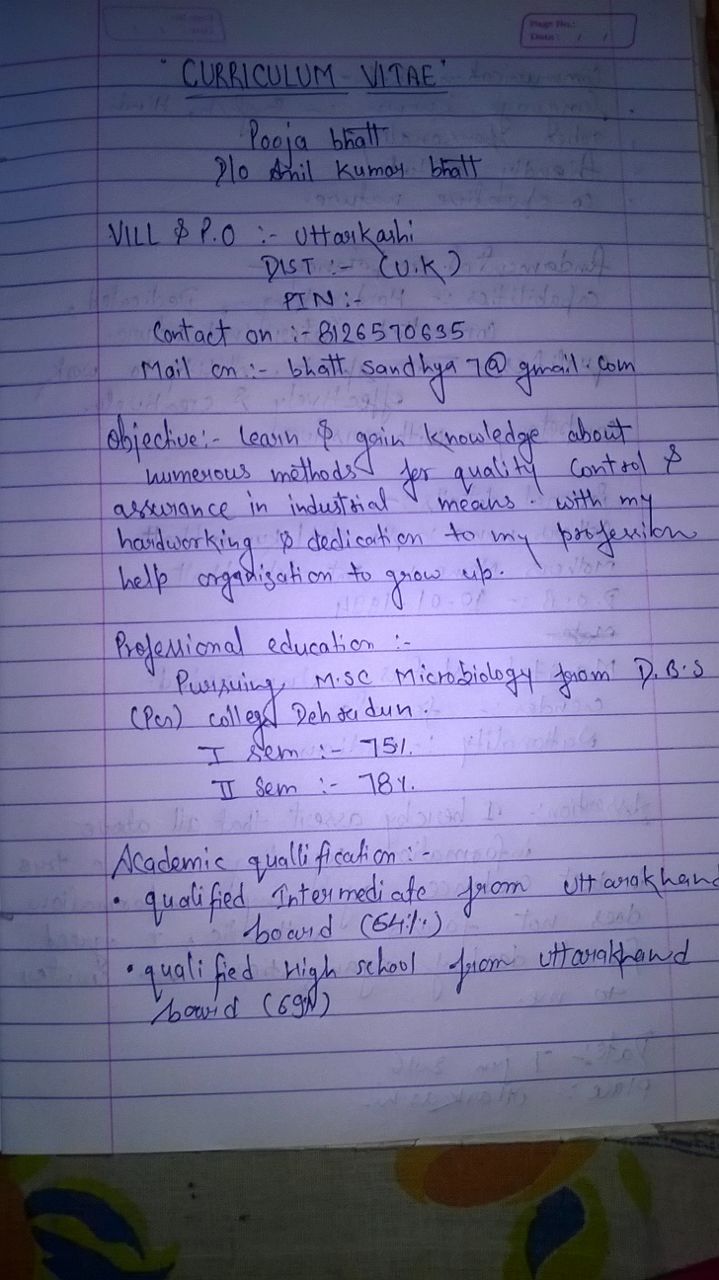 Page No.:
Date: / /
"CURRICULUM VITAE"
Pooja bhatt
D/o Anil Kumar bhatt
VILL & P.O :- Uttarkashi
DIST :- (U.K)
PIN :-
Contact on :- 8126570635
Mail on :- bhatt.sandhya7@gmail.com
Objective:- Learn & gain knowledge about
numerous methods for quality control &
assurance in industrial means. with my
hardworking & dedication to my profession
help orgadization to grow up.
Professional education :-
Pursuing M.SC Microbiology from D.B.S
(PG) college Dehradun.
I Sem :- 75%.
II Sem :- 78%.
Academic quallification :-
• qualified Intermediate from Uttarakhand
board (64%)
• qualified High school from Uttarakhand
board (69%)